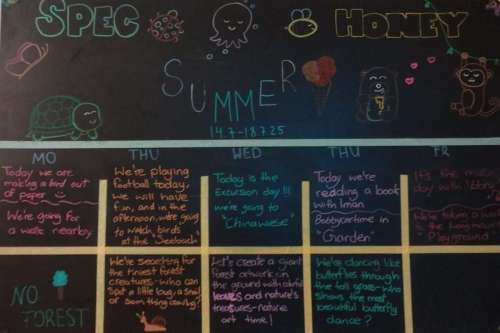 SPEC HONEY
SUMMER
14.7-18.7.25
MO THU WED THU FR
Today we are
making a bird out
of paper
We're going for
a walk nearby
We're playing
football today,
we will have
fun, and in the
afternoon, we're going
to watch birds
at the
Today is the
Excursion day !!!
we're going to
"Chinawiese"
Today we're
reading a book
with Iman
Bobbycartime in
"Garden"
It's the music
day with
We're taking a
Playground
NO
FOREST
We're searching for
the tiniest forest
creatures-who can
spot a little bug, a snail
or something crawling?
Let's create a giant
forest artwork on
the ground with colorful
leaves and nature's
treasures-nature
art time!
We're dancing like
butterflies through
the tall grass-who
shows the most
beautiful butterfly
dance?